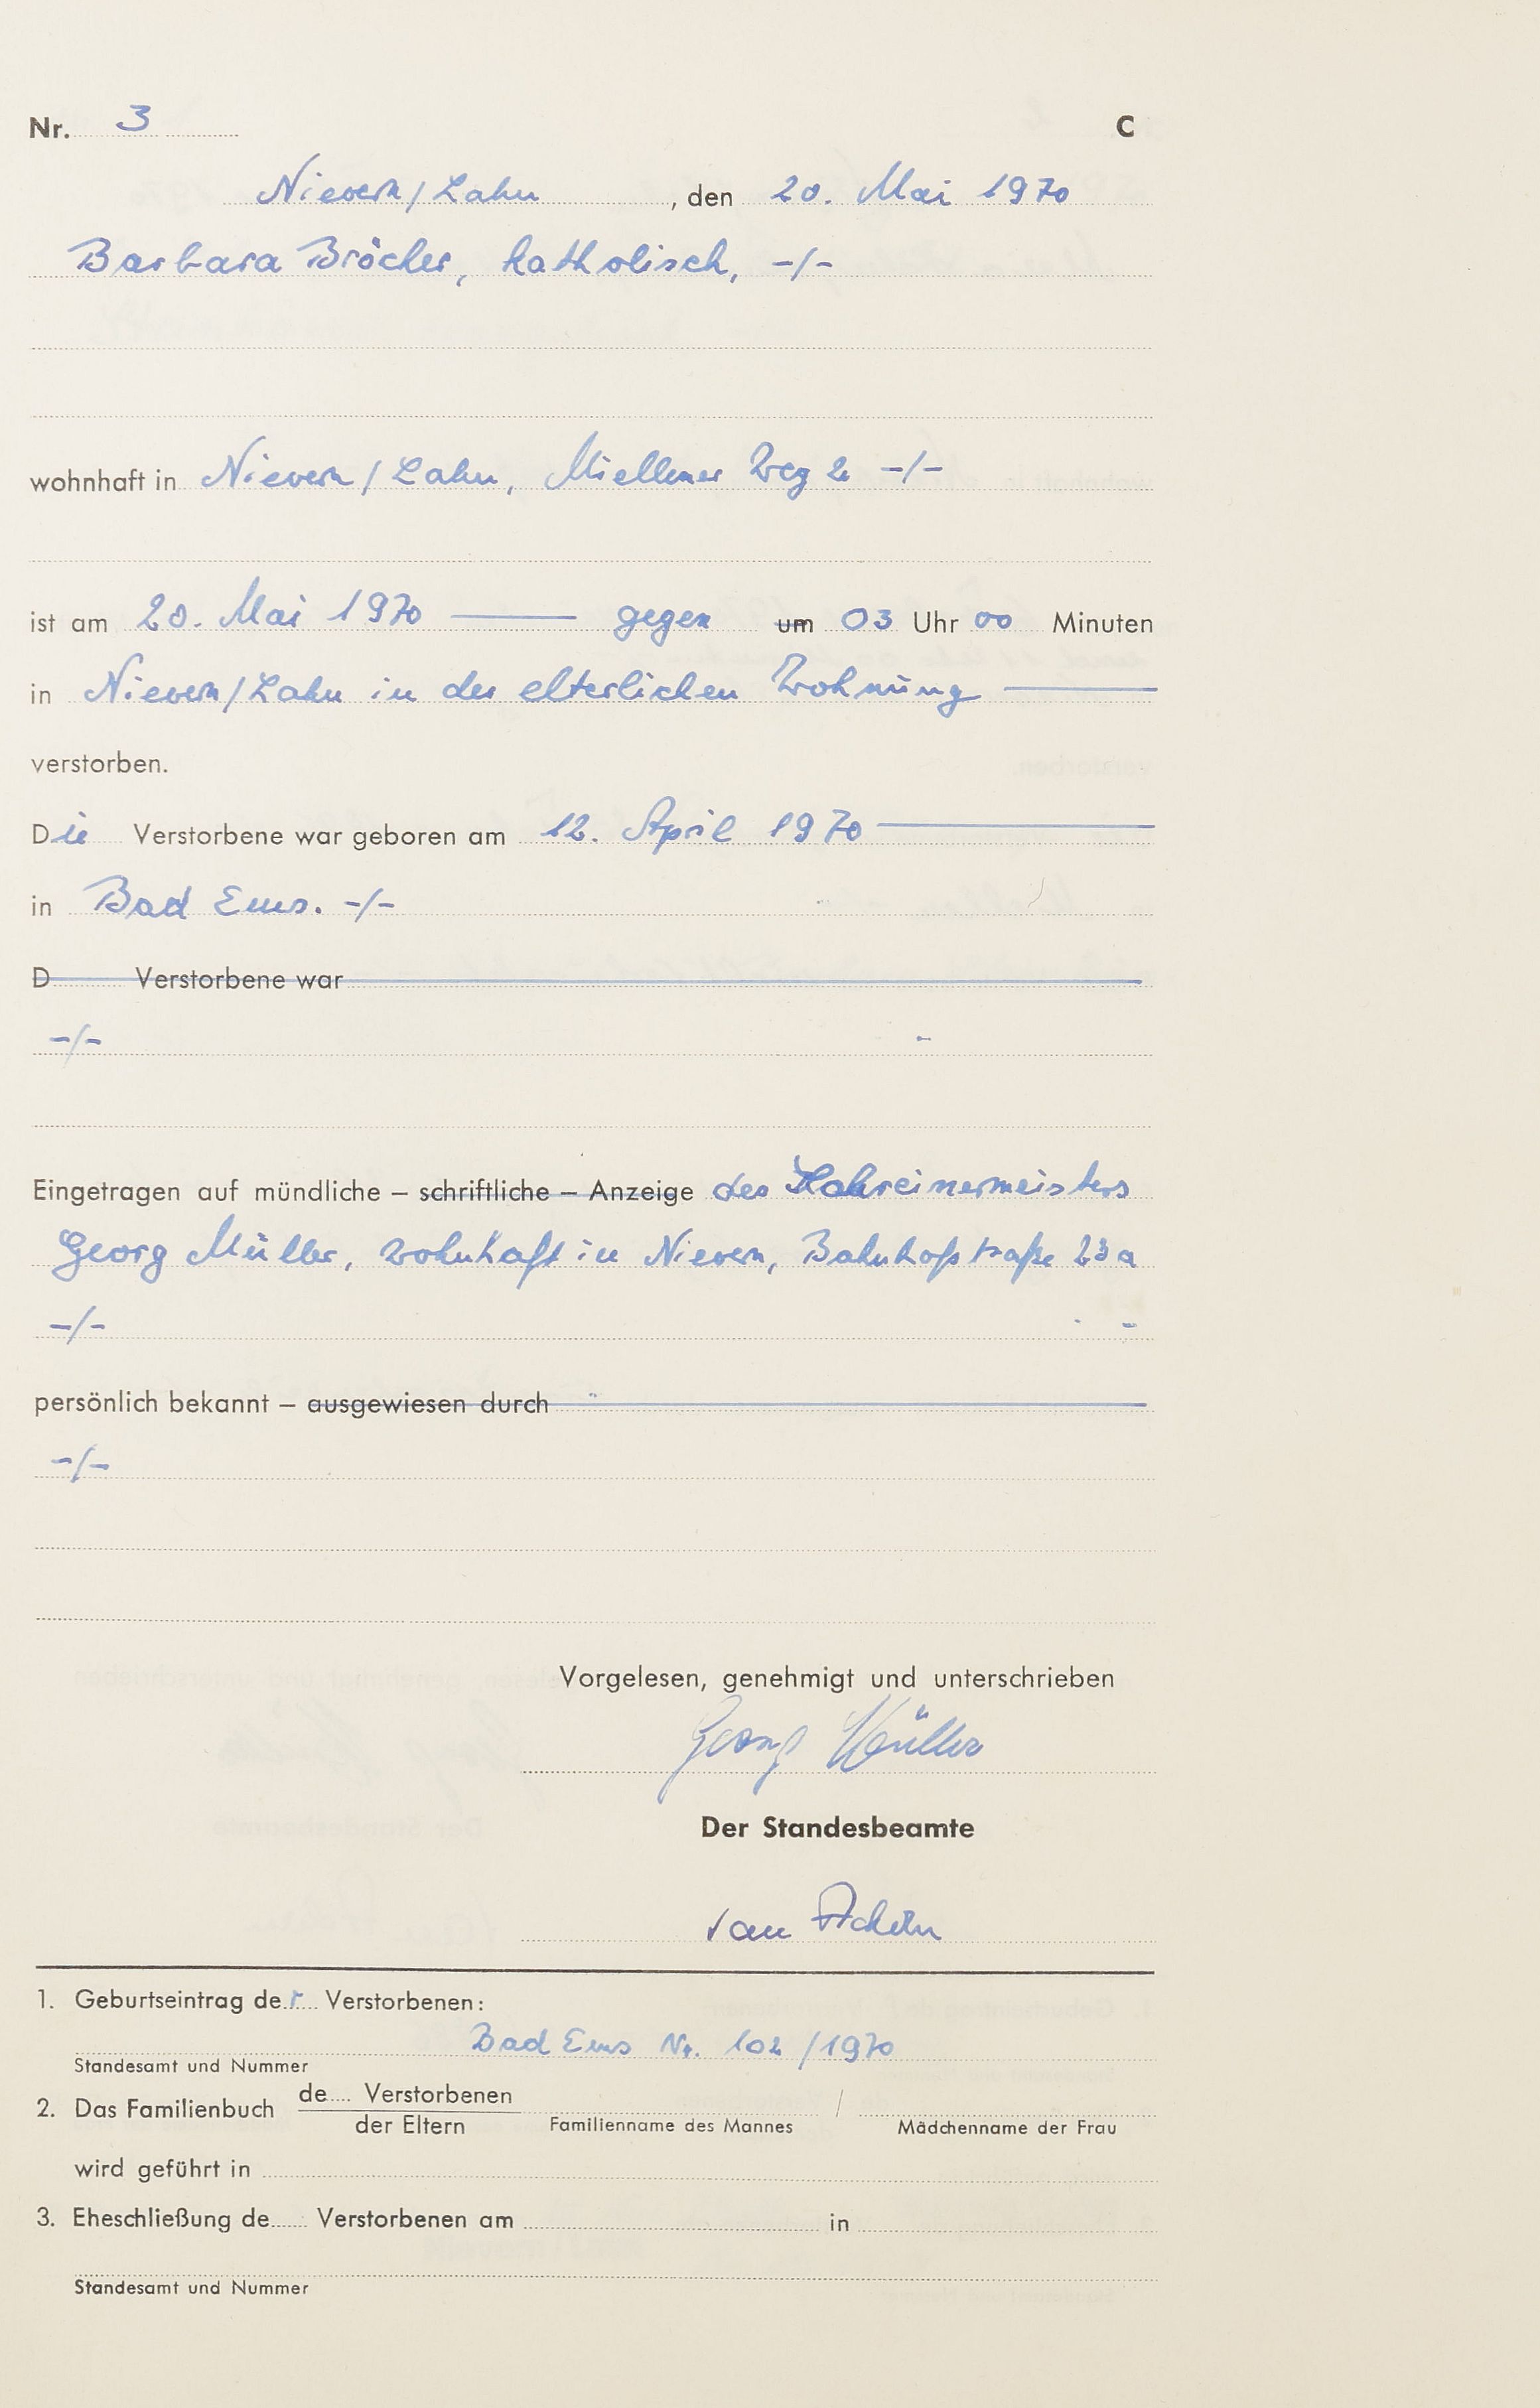 Nr. 3 C
Nievern/Lahn, den 20. Mai 1970
Barbara Bröcher, katholisch, -/-
wohnhaft in Nievern/Lahn, Miellener Weg 2 -/-
ist am 20. Mai 1970 — gegen um 03 Uhr 00 Minuten
in Nievern/Lahn in der elterlichen Wohnung —
verstorben.
Die Verstorbene war geboren am 12. April 1970 —
in Bad Ems. -/-
D Verstorbene war
-/-
Eingetragen auf mündliche – schriftliche – Anzeige des
Georg Müller, wohnhaft in Nievern, Bahnhofstraße 23a
-/-
persönlich bekannt – ausgewiesen durch
-/-
Vorgelesen, genehmigt und unterschrieben
Georg Müller
Der Standesbeamte
van
1. Geburtseintrag der Verstorbenen:
Bad Ems Nr. 102/1970
Standesamt und Nummer
2. Das Familienbuch de.... Verstorbenen /
der Eltern Familienname des Mannes Mädchenname der Frau
wird geführt in
3. Eheschließung de...... Verstorbenen am in
Standesamt und Nummer